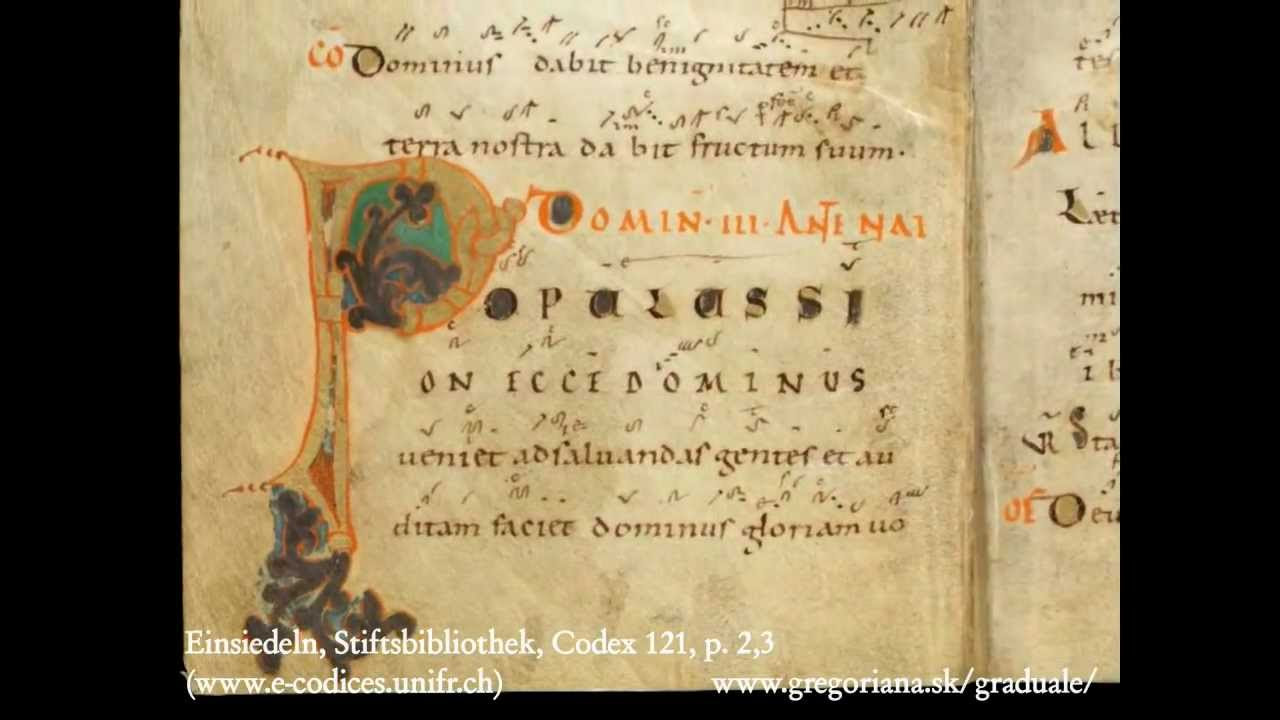 CŌ Dominus dabit benignitatem et
terra nostra da bit fructum suum.
DOMIN · III · ANTE NAT
POPULUS SI
ON ECCE DOMINUS
ueniet ad saluandas gentes et au
ditam faciet dominus gloriam uo
ALL
Laet
mi
OF Deu
Sta
Einsiedeln, Stiftsbibliothek, Codex 121, p. 2,3
(www.e-codices.unifr.ch)
www.gregoriana.sk/graduale/